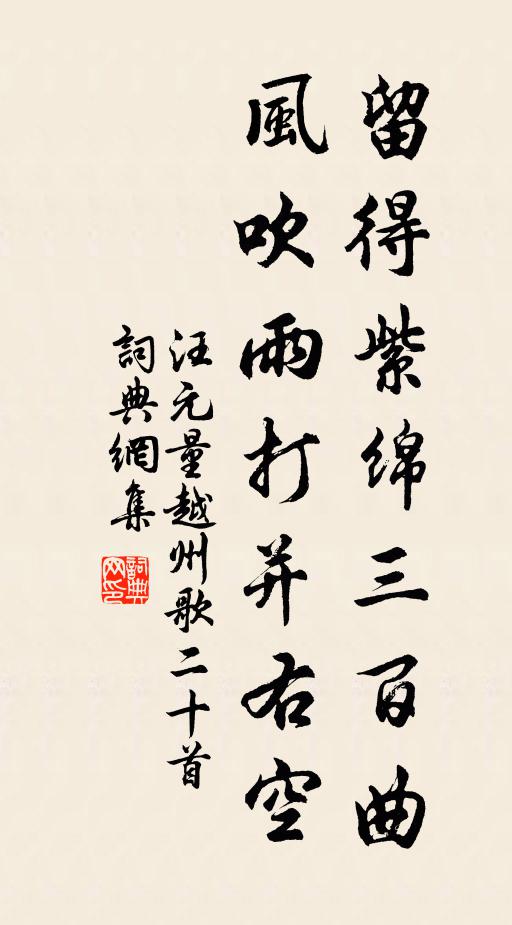 留得紫绵三百曲
風吹雨打并右空
汪元量越州歌二十首
詞典網集
詞典网印